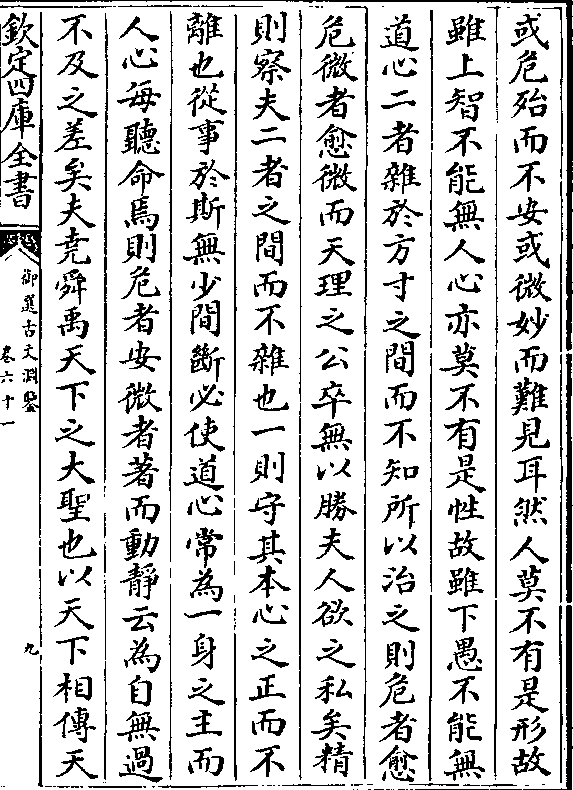 或危殆而不安或微妙而難見耳然人莫不有是形故
雖上智不能無人心亦莫不有是性故雖下愚不能無
道心二者雜於方寸之間而不知所以治之則危者愈
危微者愈微而天理之公卒無以勝夫人欲之私矣精
則察夫二者之間而不雜也一則守其本心之正而不
離也從事於斯無少間斷必使道心常為一身之主而
人心每聽命焉則危者安微者著而動靜云為自無過
不及之差矣夫堯舜禹天下之大聖也以天下相傳天
欽定四庫全書
御選古文淵鑒
卷六十一
九